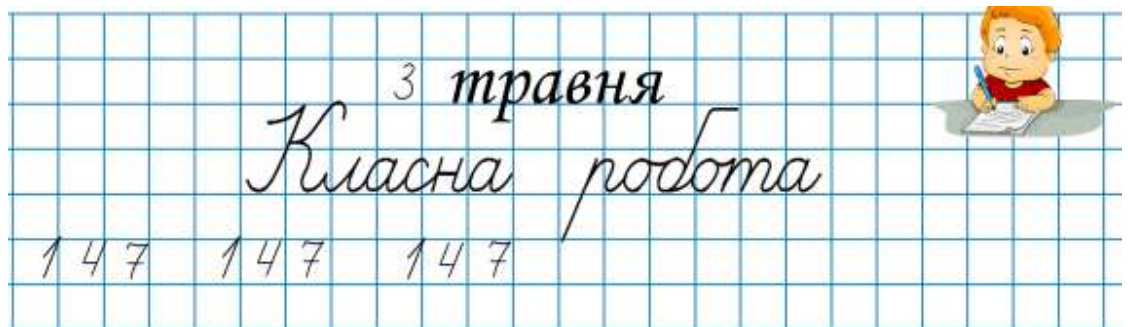 3 травня
Класна робота
1 4 7 1 4 7 1 4 7